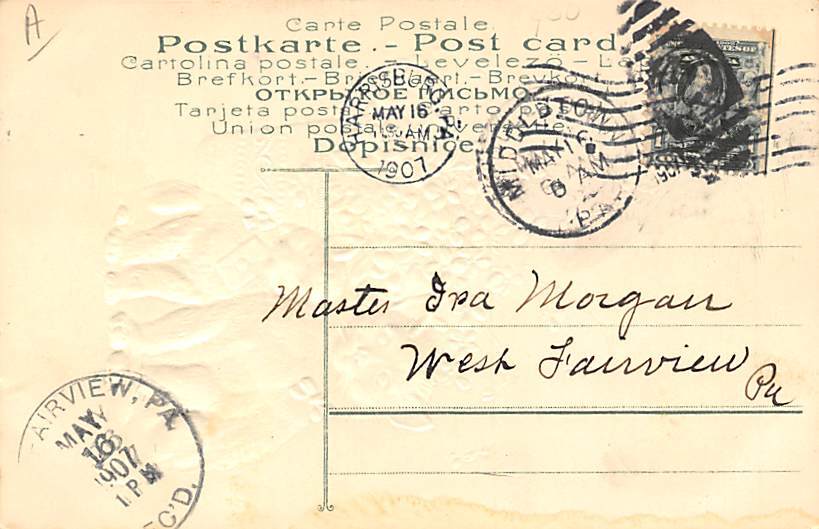 A
Carte Postale.
Postkarte. - Post card.
Cartolina postale. - Levelező - La
Brefkort. - Briefkaart. - Brevkort.
ОТКРЫТОЕ ПИСЬМО.
Tarjeta postal
Union postale
Dopisnice
HARRISBURG, PA.
MAY 16
AM
1907
MIDDLETOWN
MAY 16
6 AM
PA.
Master Ira Morgan
West Fairview
Pa
AIRVIEW, PA.
MAY
16
1907
1 PM
C'D.